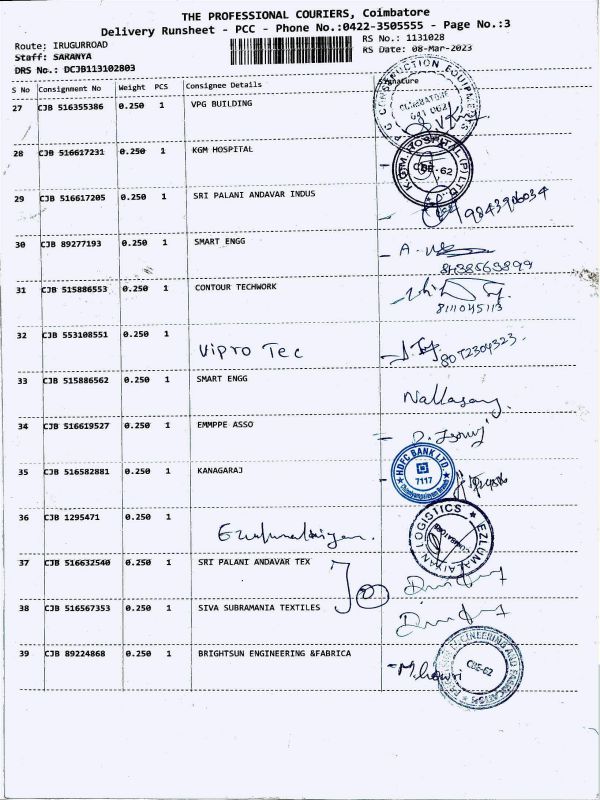 THE PROFESSIONAL COURIERS, Coimbatore
Delivery Runsheet - PCC - Phone No.:0422-3505555 - Page No.:3
Route: IRUGURROAD RS No.: 1131028
Staff: SARANYA RS Date: 08-Mar-2023
DRS No.: DCJB113102803
S No Consignment No Weight PCS Consignee Details Signature
27 CJB 516355386 0.250 1 VPG BUILDING
28 CJB 516617231 0.250 1 KGM HOSPITAL
K.G.M. HOSPITAL (P) LTD
CBE-62
29 CJB 516617205 0.250 1 SRI PALANI ANDAVAR INDUS
30 CJB 89277193 0.250 1 SMART ENGG
31 CJB 515886553 0.250 1 CONTOUR TECHWORK
8111045113
32 CJB 553108551 0.250 1 Vipro Tec
8072304323
33 CJB 515886562 0.250 1 SMART ENGG
34 CJB 516619527 0.250 1 EMMPPE ASSO
35 CJB 516582881 0.250 1 KANAGARAJ
HDFC BANK LTD
7117
36 CJB 1295471 0.250 1
EZLUMALAIYAN LOGISTICS
COIMBATORE
37 CJB 516632540 0.250 1 SRI PALANI ANDAVAR TEX
38 CJB 516567353 0.250 1 SIVA SUBRAMANIA TEXTILES
39 CJB 89224868 0.250 1 BRIGHTSUN ENGINEERING &FABRICA
CBE-62